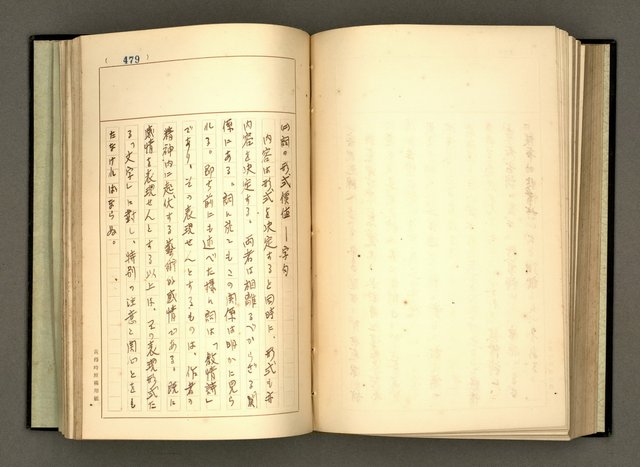 (479)
四詞の形式價値—字句
内容は形式を決定すると同時に、形式も亦
内容を決定する。両者は相離るべからざる関
係にある。詞に於てもこの関係は明かに見ら
れる。即ち前にも述べた様に詞は「敍情詩」
であり、その表現せんとするものは、作者の
精神内に起伏する藝術的感情である。既に
感情を表現せんとする以上は、その表現形式た
る「文字」に對し、特別の注意と関心とをも
たなければならぬ。
原稿用紙